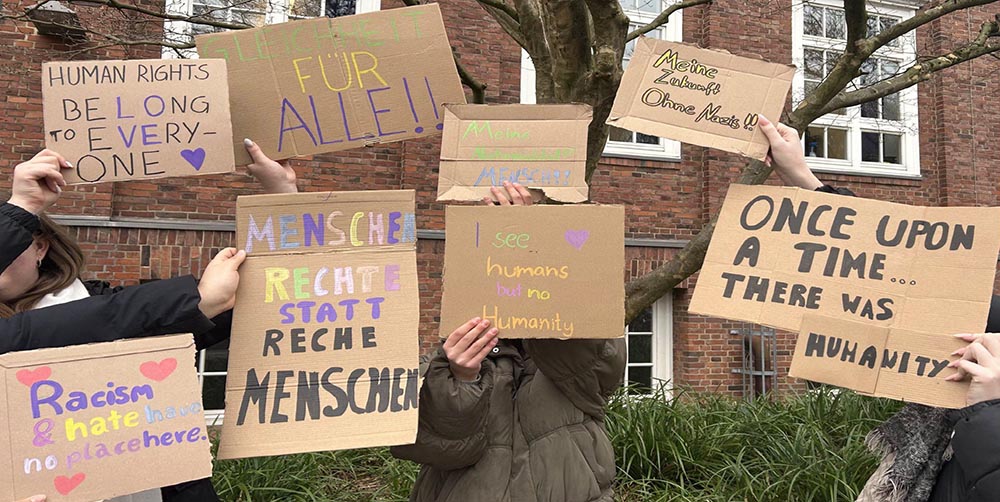 HUMAN RIGHTS
BE LONG
TO EVERY-
ONE
GLEICHHEIT
FÜR
ALLE!!
Meine
MENSCH!!
Meine
Zukunft
Ohne Nazis!!
MENSCHEN
RECHTE
STATT
RECHE
MENSCHEN
I see
humans
but no
Humanity
ONCE UPON
A TIME...
THERE WAS
HUMANITY
Racism
& hate have
no place here.